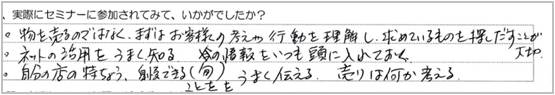 実際にセミナーに参加されてみて、いかがでしたか？
。物を売るのではなく、まずはお客様の考えや行動を理解し、求めているものを探しだすことが大切
。ネットの活用をうまく知る 今の情報をいつも頭に入れておく、
。自分の店の特ちょう、創役できる(旬)ことをうまく伝える、売りは何か考える、